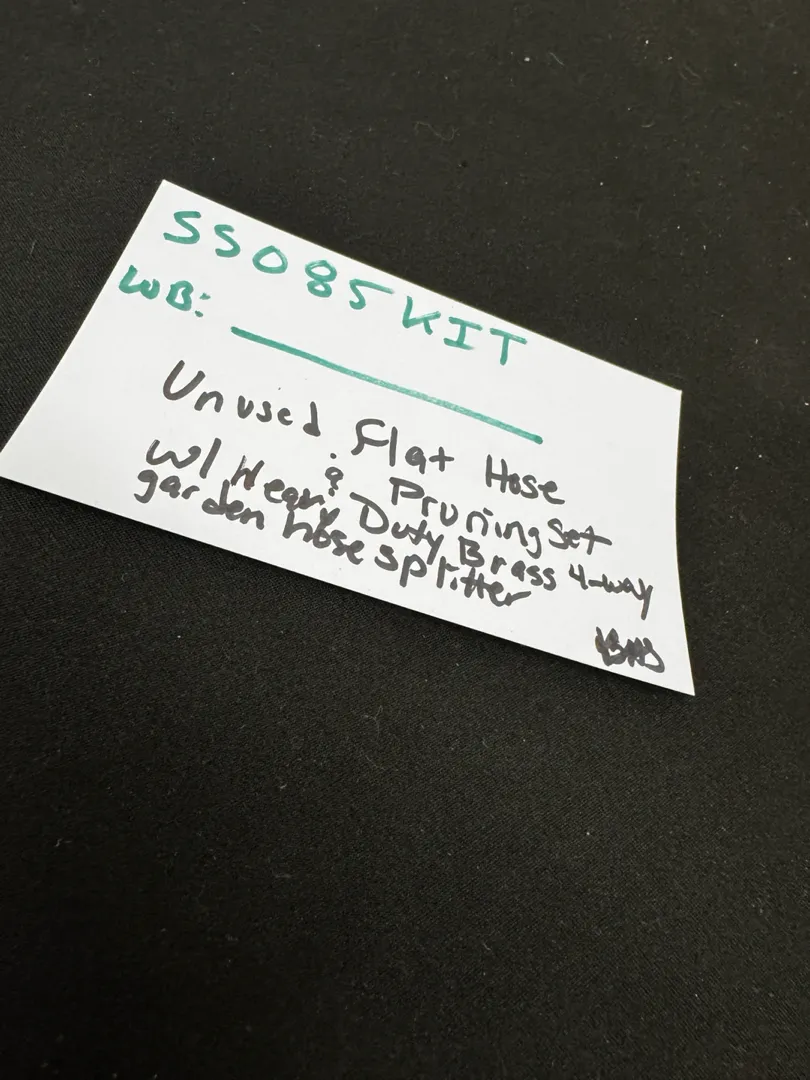 SS085KIT
WB:
Unused Flat Hose
& Pruning Set
w/ Heavy Duty Brass 4-way
garden hose splitter